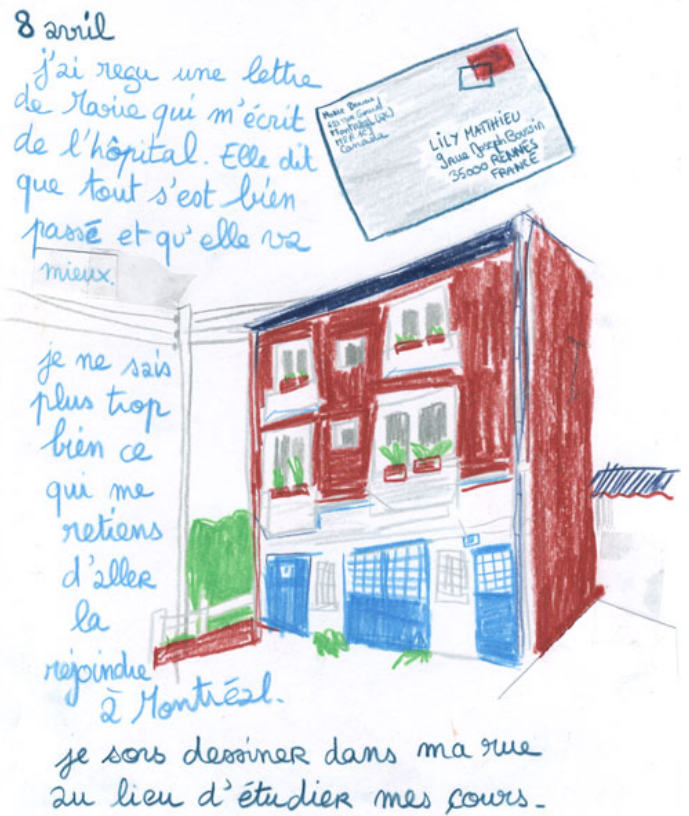 8 avril
j'ai reçu une lettre
de Marie qui m'écrit
de l'hôpital. Elle dit
que tout s'est bien
passé et qu'elle va
mieux.
Marie
Montréal (QC)
Canada
LILY MATTHIEU
9 rue Joseph Boussin
35000 RENNES
FRANCE
je ne sais
plus trop
bien ce
qui me
retiens
d'aller
la
rejoindre
à Montréal.
je sors dessiner dans ma rue
au lieu d'étudier mes cours.